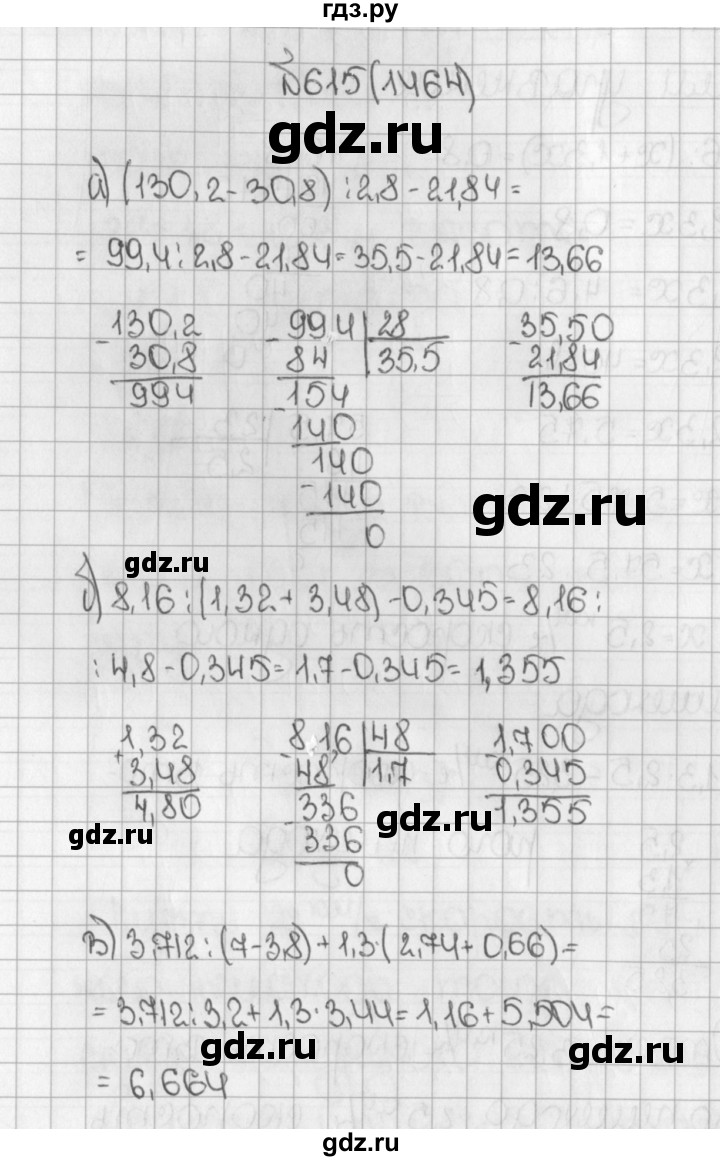 гдз.ру
№615(1464)
gdz.ru
а) (130,2-30,8):2,8-21,84=
= 99,4:2,8-21,84=35,5-21,84=13,66
-130,2
30,8
994
-99,4|28
84 |35,5
-154
140
140
-140
0
-35,50
21,84
13,66
gdz.ru
gdz.ru
б) 8,16:(1,32+3,48)-0,345=8,16:
:4,8-0,345=1,7-0,345=1,355
+1,32
3,48
4,80
-8,16|48
48 |1,7
-336
336
0
-1,700
0,345
1,355
gdz.ru
gdz.ru
в) 3,712:(7-3,8)+1,3·(2,74+0,66)=
= 3,712:3,2+1,3·3,44=1,16+5,504=
gdz.ru
gdz.ru
= 6,664
gdz.ru